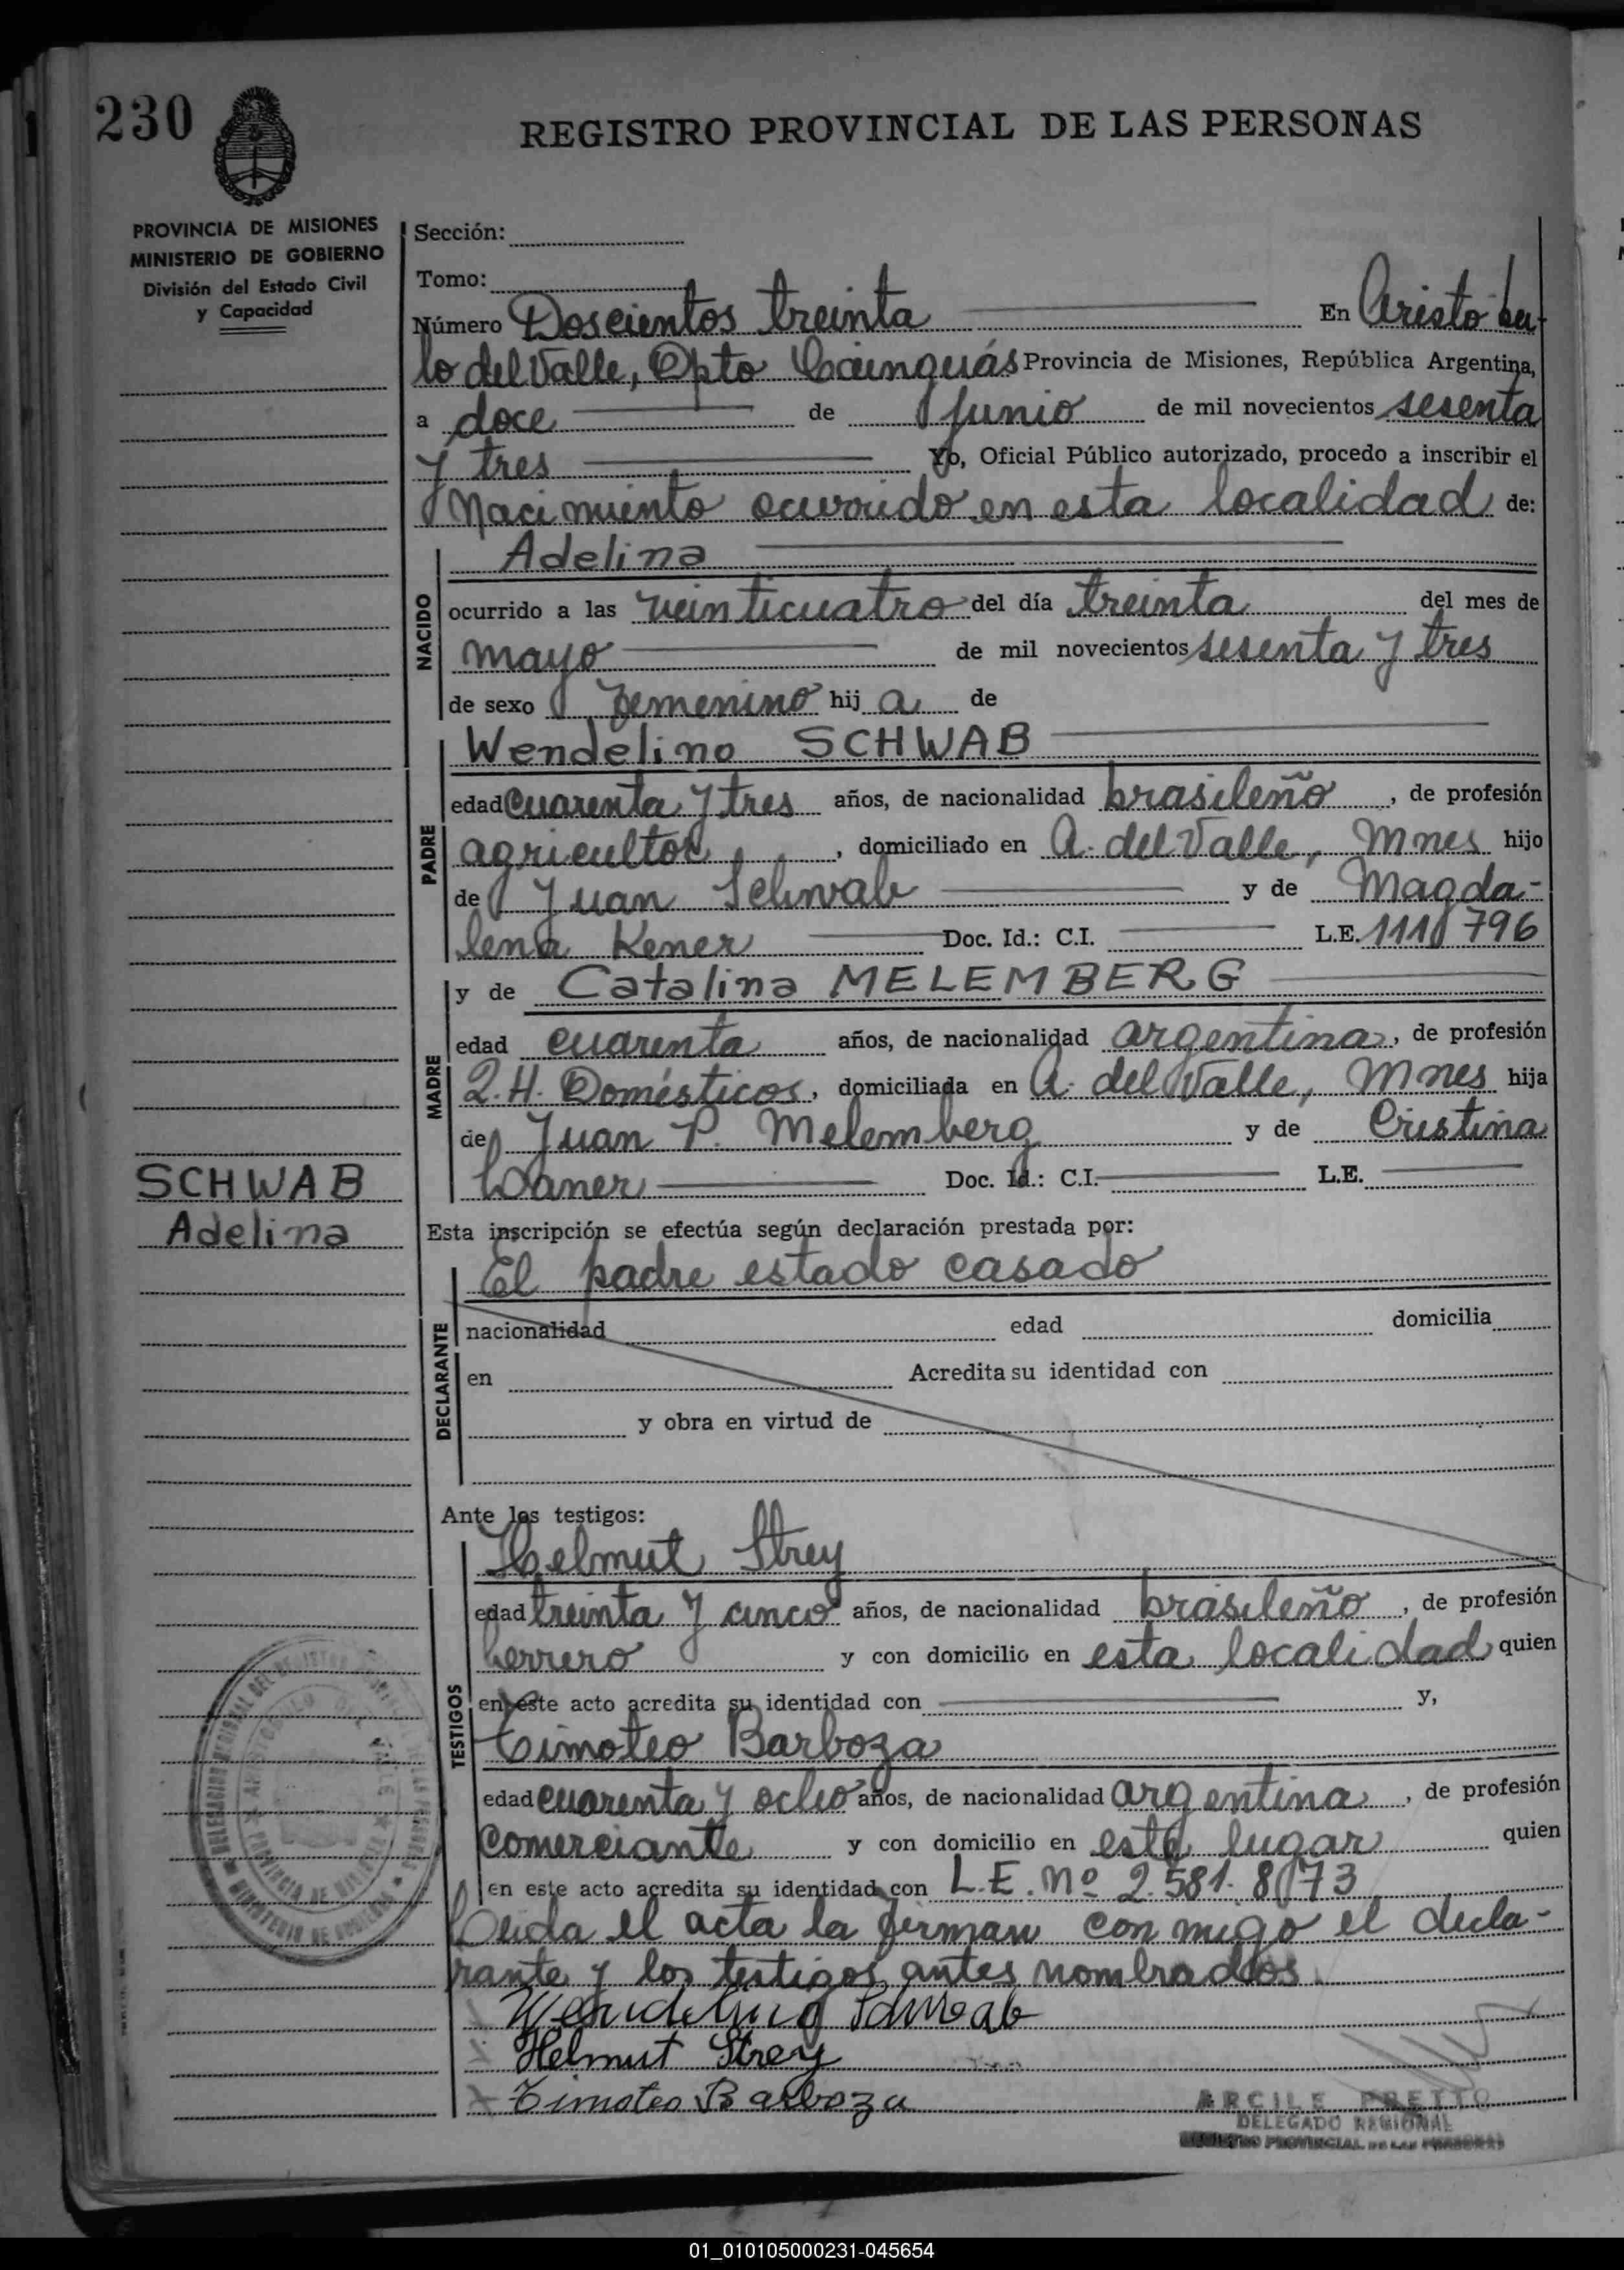 230
REGISTRO PROVINCIAL DE LAS PERSONAS
PROVINCIA DE MISIONES
MINISTERIO DE GOBIERNO
División del Estado Civil
y Capacidad
Sección:
Tomo:
Número Doscientos treinta En Aristobu-
lo del Valle, Dpto Cainguás Provincia de Misiones, República Argentina,
a doce de Junio de mil novecientos sesenta
y tres Yo, Oficial Público autorizado, procedo a inscribir el
Nacimiento ocurrido en esta localidad de:
NACIDO
Adelina
ocurrido a las veinticuatro del día treinta del mes de
mayo de mil novecientos sesenta y tres
de sexo femenino hij a de
PADRE
Wendelino SCHWAB
edad cuarenta y tres años, de nacionalidad brasileño, de profesión
agricultor, domiciliado en A. del Valle, Mnes hijo
de Juan Schwab y de Magda-
lena Kener Doc. Id.: C.I. L.E. 1110796
MADRE
y de Catalina MELEMBERG
edad cuarenta años, de nacionalidad argentina, de profesión
Q.H. Domésticos, domiciliada en A. del Valle, Mnes hija
de Juan P. Melemberg y de Cristina
Doc. Id.: C.I. L.E.
SCHWAB
Adelina
Esta inscripción se efectúa según declaración prestada por:
DECLARANTE
El padre estado casado
nacionalidad edad domicilia
en Acredita su identidad con
y obra en virtud de
Ante los testigos:
TESTIGOS
Helmut Strey
edad treinta y cinco años, de nacionalidad brasileño, de profesión
herrero y con domicilio en esta localidad quien
en este acto acredita su identidad con y,
Timoteo Barboza
edad cuarenta y ocho años, de nacionalidad argentina, de profesión
comerciante y con domicilio en este lugar quien
en este acto acredita su identidad con L.E. Nº 2.581.873
Leida el acta la firman con migo el decla-
rante y los testigos antes nombrados.
Wendelino Schwab
Helmut Strey
Timoteo Barboza
ARCILE PRETTO
DELEGADO REGIONAL
REGISTRO PROVINCIAL DE LAS PERSONAS
01_010105000231-045654